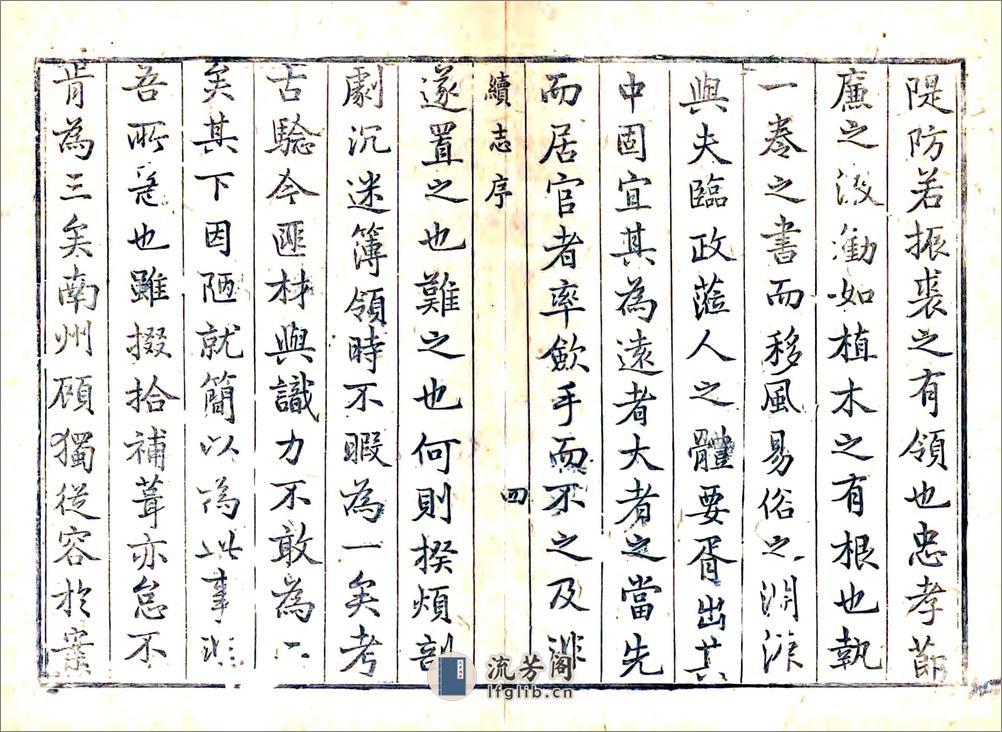 隄防若振裘之有領也忠孝節
廉之激勸如植木之有根也執
一卷之書而移風易俗之淵源
與夫臨政蒞人之體要胥出其
中固宜其為遠者大者之當先
而居官者率飲手而不之及非
續志序 四
遂置之也難之也何則揆煩剖
劇沉迷簿領時不暇為一矣考
古驗今匪材與識力不敢為二
矣其下因陋就簡以為此事非
吾所急也雖掇拾補葺亦怠不
肯為三矣南州頎獨從容於案
流芳阁
lfglib.cn